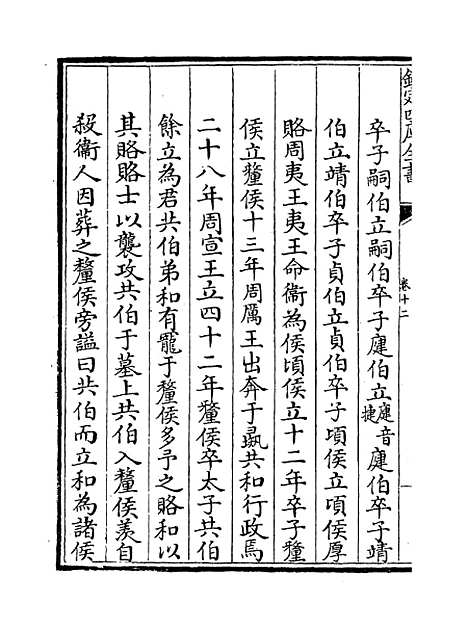 欽定四庫全書
卷十二
卒子嗣伯立嗣伯卒子疌伯立疌音捷疌伯卒子靖
伯立靖伯卒子貞伯立貞伯卒子頃侯立頃侯厚
賂周夷王夷王命衞為侯頃侯立十二年卒子釐
侯立釐侯十三年周厲王出奔于彘共和行政焉
二十八年周宣王立四十二年釐侯卒太子共伯
餘立為君共伯弟和有寵于釐侯多予之賂和以
其賂賂士以襲攻共伯于墓上共伯入釐侯羨自
殺衞人因葬之釐侯旁謚曰共伯而立和為諸侯